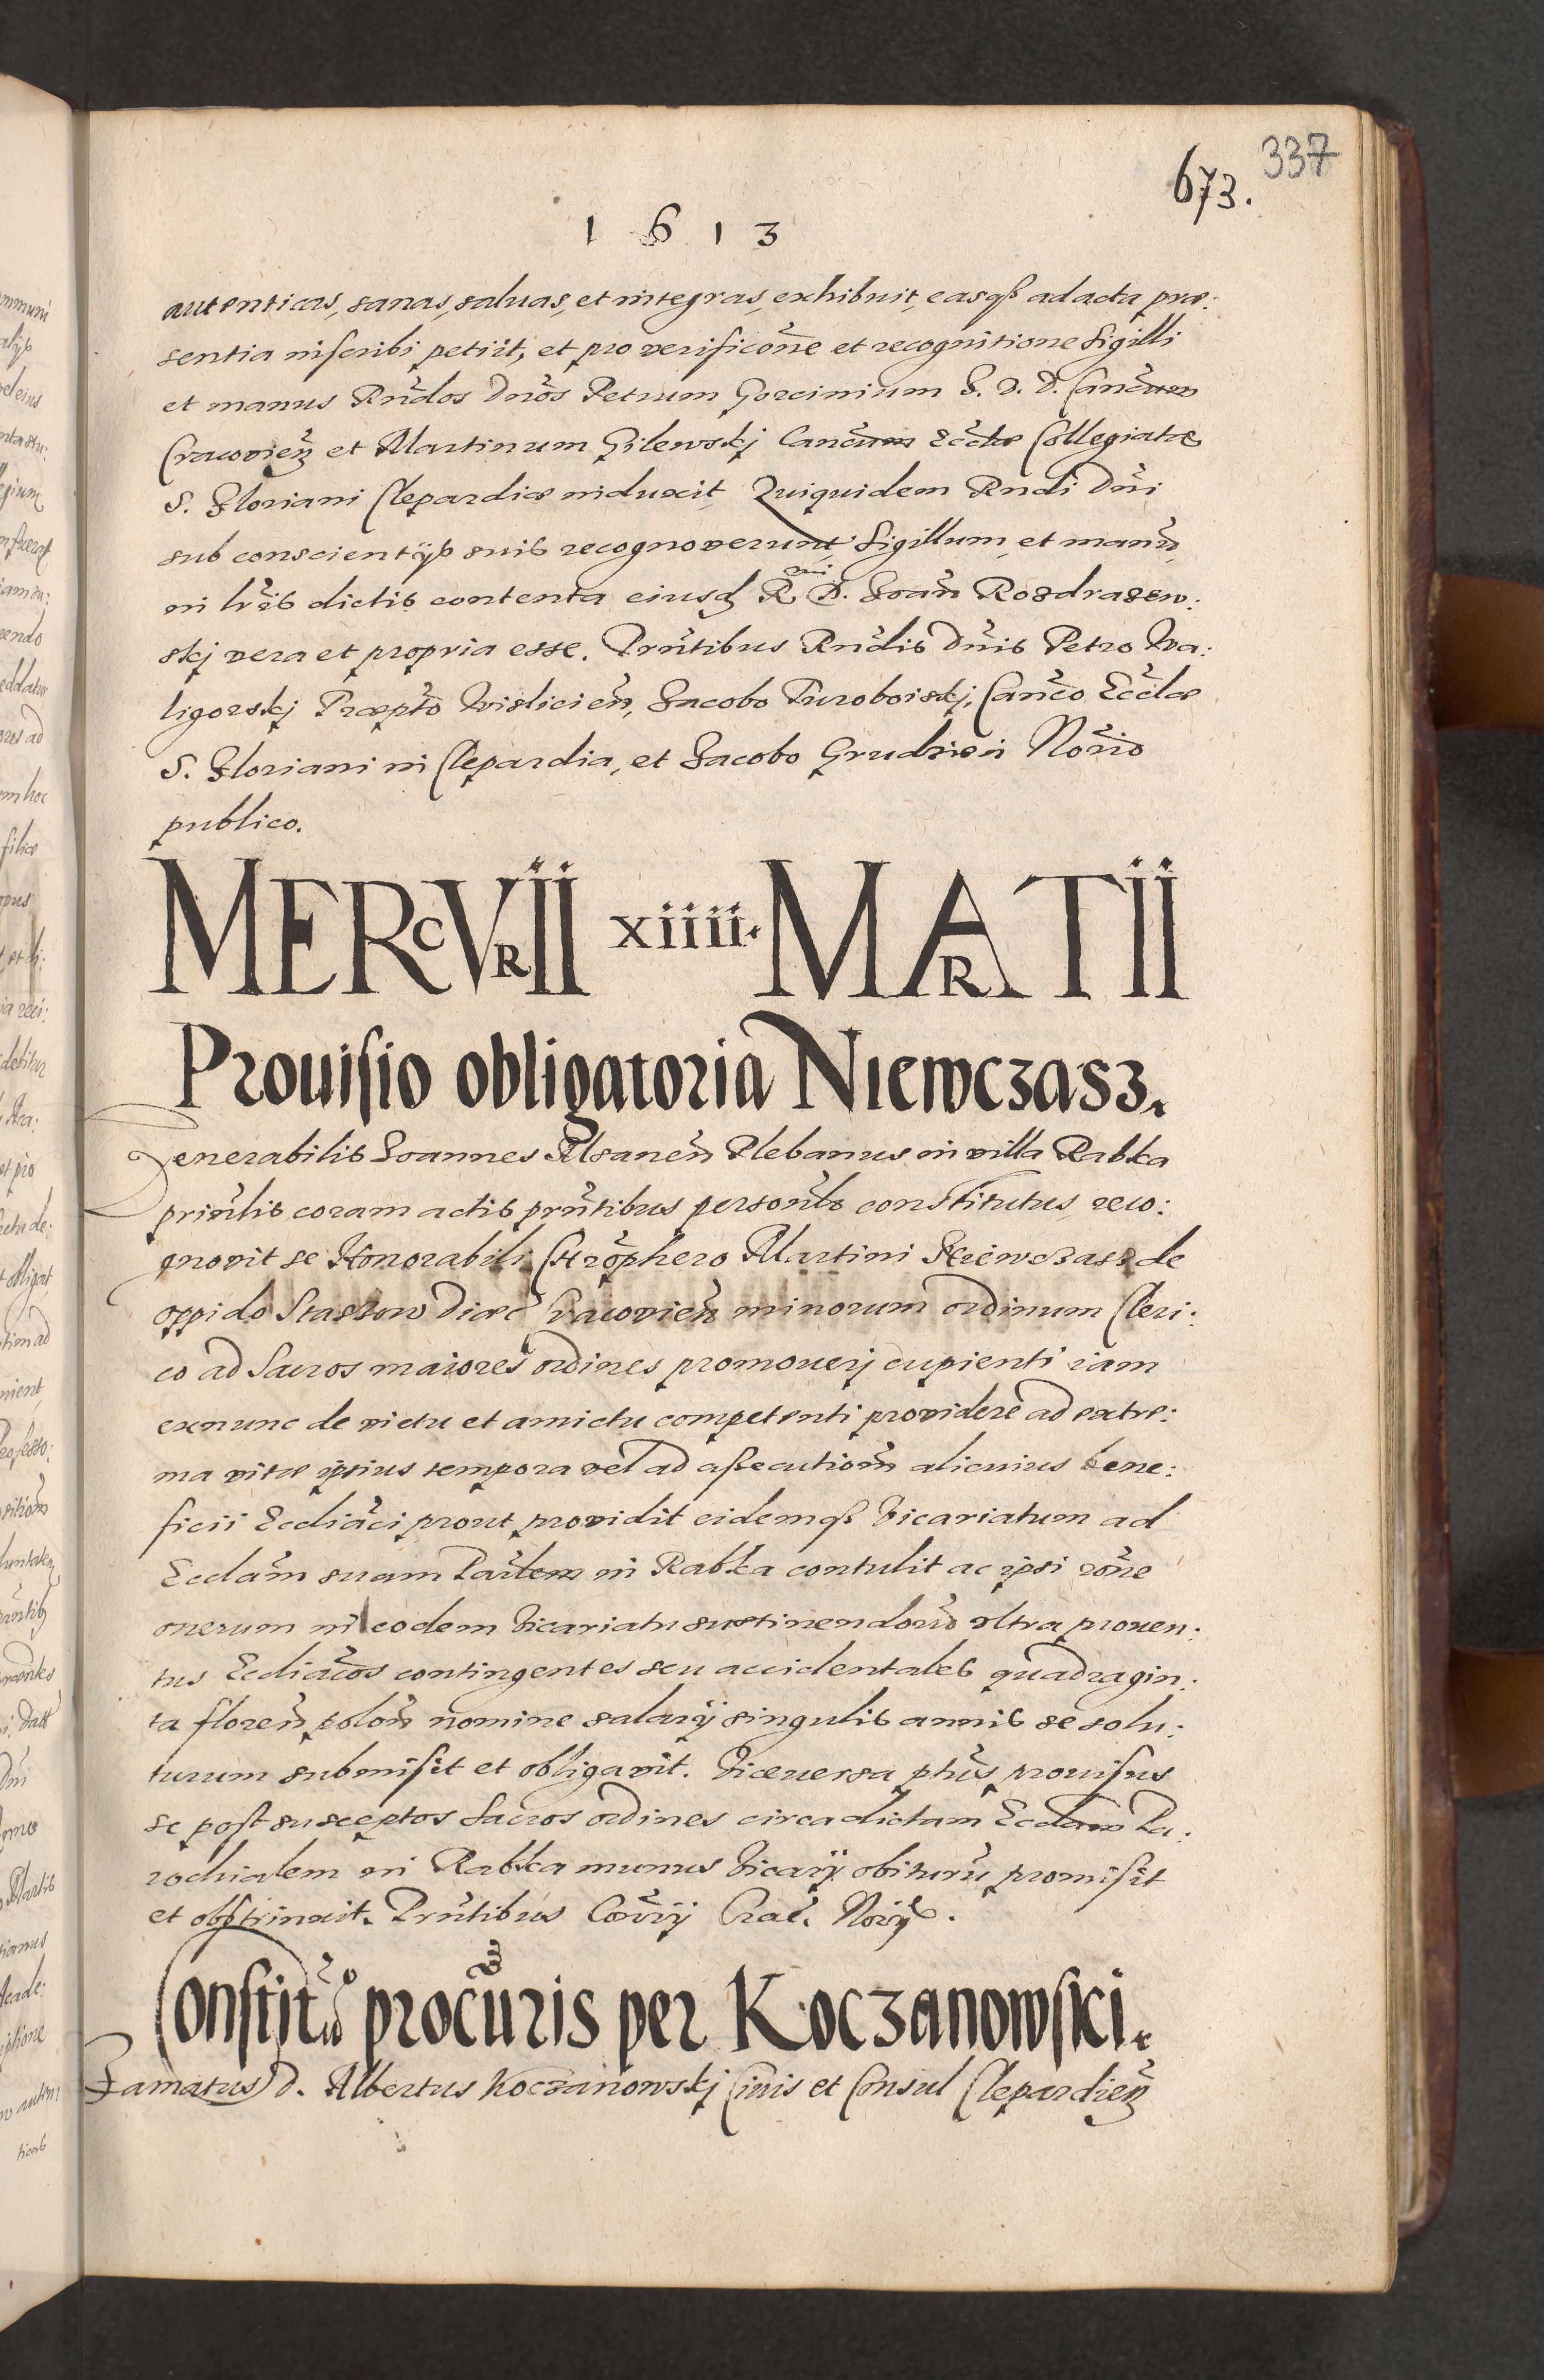 337
673.
1613
autenticas, sanas, saluas, et integras, exhibuit, easqß ad acta præ:
sentia inscribi petiit, et pro verificōne et recognitione Sigilli
et manus Rndos Dnos Petrum Gorcinium S. D. D. Cancum
Cracovien et Martinum Gilewskj Cancum Ecclæ Collegiatæ
S. Floriani Clepardiæ induxit, Quiquidem Rndi Dni
sub conscientijs suis recognoverunt Sigillum, et manu,
in lris dictis contenta eiusd R D. Joan Rozdrazew:
skj vera et propria esse. Prntibus Rndis Dnis Petro Wa:
ligorskj Præpto Wislicien, Jacobo Turoboiskj, Canco Ecclæ
S. Floriani in Clepardia, et Jacobo Grudzien Norio
publico.
MERCVRII xiiii. MARTII
Prouisio obligatoria Niewczasz.
Venerabilis Joannes Plebanus in villa Rabka
prinlis coram actis prntibus personlr constitutus, reco:
gnovit se Honorabili Chrophero Martini Niewczasz de
oppido Staszow Diæc Cracovien minorum ordinum Cleri:
co ad Sacros maiores ordines promoverj cupienti iam
exnunc de victu et amictu competenti providere ad extre:
ma vitæ ipsius tempora vel ad assecutiom alicuius bene:
ficii Eccliaci prout providit eidemqß Vicariatum ad
Ecclam suam Parlem in Rabka contulit ac ipsi rōne
onerum in eodem Vicariatu sustinendoru vltra proven:
tus Eccliacos contingentes seu accidentales quadragin:
ta floren polon nomine salarij singulis annis se solu:
turum submisit et obligavit. Viceversa phus provisus
se post susceptos Sacros ordines circa dictam Ecclam Pa:
rochialem in Rabka munus Vicarij obituru promisit
et obstrinxit. Prntibus Crac. Norijs.
Constituo procuris per Koczanowski.
Famatus D. Albertus Koczanowskj Civis et Consul Clepardien